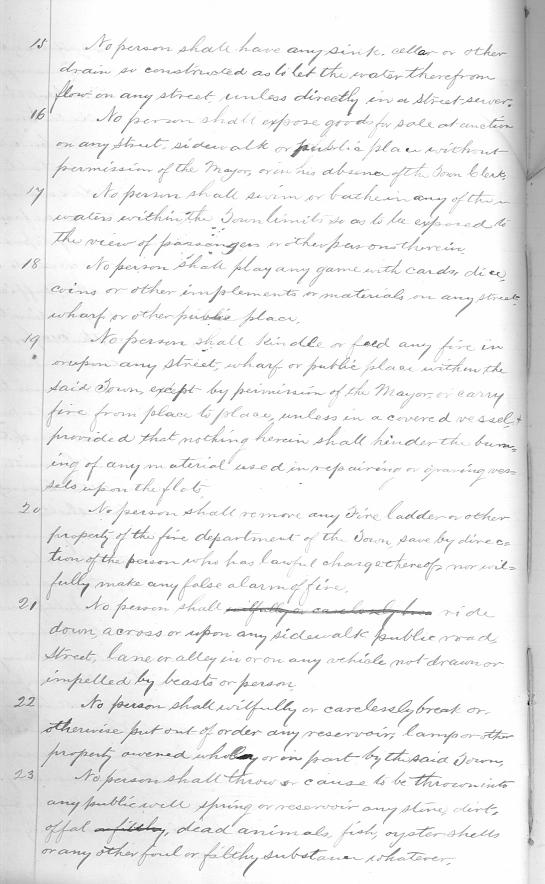 15 No person shall have any sink, cellar or other
drain so constructed as to let the water therefrom
flow on any street unless directly in a street sewer.
16 No person shall expose goods for sale at auction
on any street, sidewalk or public place without
permission of the Mayor, or in his absence of the Town Clerk
17 No person shall swim or bathe in any of the
waters within the Town limits so as to be exposed to
the view of passengers or other persons therein.
18 No person shall play any game with cards, dice,
coins or other implements or materials on any street,
wharf or other public place.
19 No person shall kindle or feed any fire in
or upon any street, wharf or public place within the
said Town, except by permission of the Mayor, or carry
fire from place to place, unless in a covered vessel, &
provided that nothing herein shall hinder the burn=
ing of any material used in repairing or graving ves=
sels upon the flats
20 No person shall remove any Fire ladder or other
property of the fire department of the Town, save by direc=
tion of the person who has lawful charge thereof, nor wil=
fully make any false alarm of fire.
21 No person shall wilfully or carelessly ride
down, across or upon any sidewalk public road,
street, lane or alley in or on any vehicle not drawn or
impelled by beasts or person.
22 No person shall wilfully or carelessly break or
otherwise put out of order any reservoir, lamp or other
property owened wholly or in part by the said Town,
23 No person shall throw or cause to be thrown into
any public well spring or reservoir any stone, dirt,
offal or filthy, dead animals, fish, oyster shells
or any other foul or filthy substance whatever.